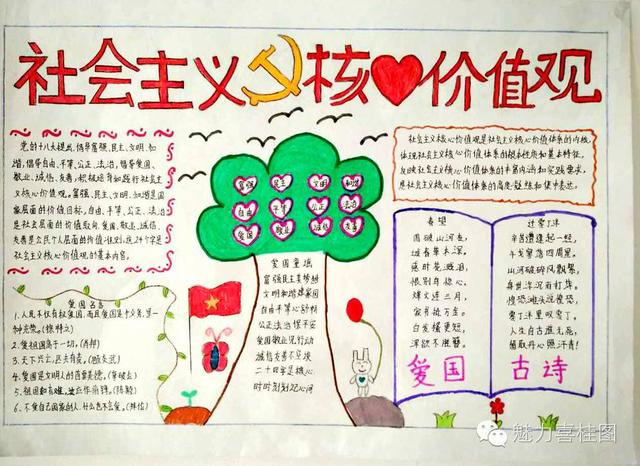 社会主义核价值观
党的十八大提出,倡导富强、民主、文明、和
谐,倡导自由、平等、公正、法治,倡导爱国、
敬业、诚信、友善,积极培育和践行社会主
义核心价值观。富强、民主、文明、和谐是国
家层面的价值目标,自由、平等、公正、法治
是社会层面的价值取向,爱国、敬业、诚信、
友善是公民个人层面的价值准则,这24个字是
社会主义核心价值观的基本内容。
爱国名言
1.人民不仅有权爱国,而且爱国是个义务,是一
种光荣。(徐特立)
2.爱祖国高于一切。(肖邦)
3.天下兴亡,匹夫有责。(顾炎武)
4.爱国是文明人的首要美德。(拿破仑)
6.不爱自己国家的人,什么也不会爱。(拜伦)
富强 民主 文明 和谐
自由 平等 公正 法治
爱国 敬业 诚信 友善
爱国童谣
富强民主美梦骑
文明和谐建家园
自由平等心舒畅
公正法治保平安
爱国敬业见行动
诚信友善不
二十四字是核心
时时刻刻记心间
社会主义核心价值观是社会主义核心价值体系的内核,
体现社会主义核心价值体系的根本性质和基本特征,
反映社会主义核心价值体系的丰富内涵和实践要求,
是社会主义核心价值体系的高度凝练和集中表达。
春望
国破山河在,
城春草木深。
感时花溅泪,
恨别鸟惊心。
烽火连三月,
家书抵万金。
白发搔更短,
浑欲不胜簪。
爱国
过零丁洋
辛苦遭逢起一经,
干戈寥落四周星。
山河破碎风飘絮,
身世浮沉雨打萍。
惶恐滩头说惶恐,
零丁洋里叹零丁。
人生自古谁无死,
留取丹心照汗青!
古诗
魅力喜桂图